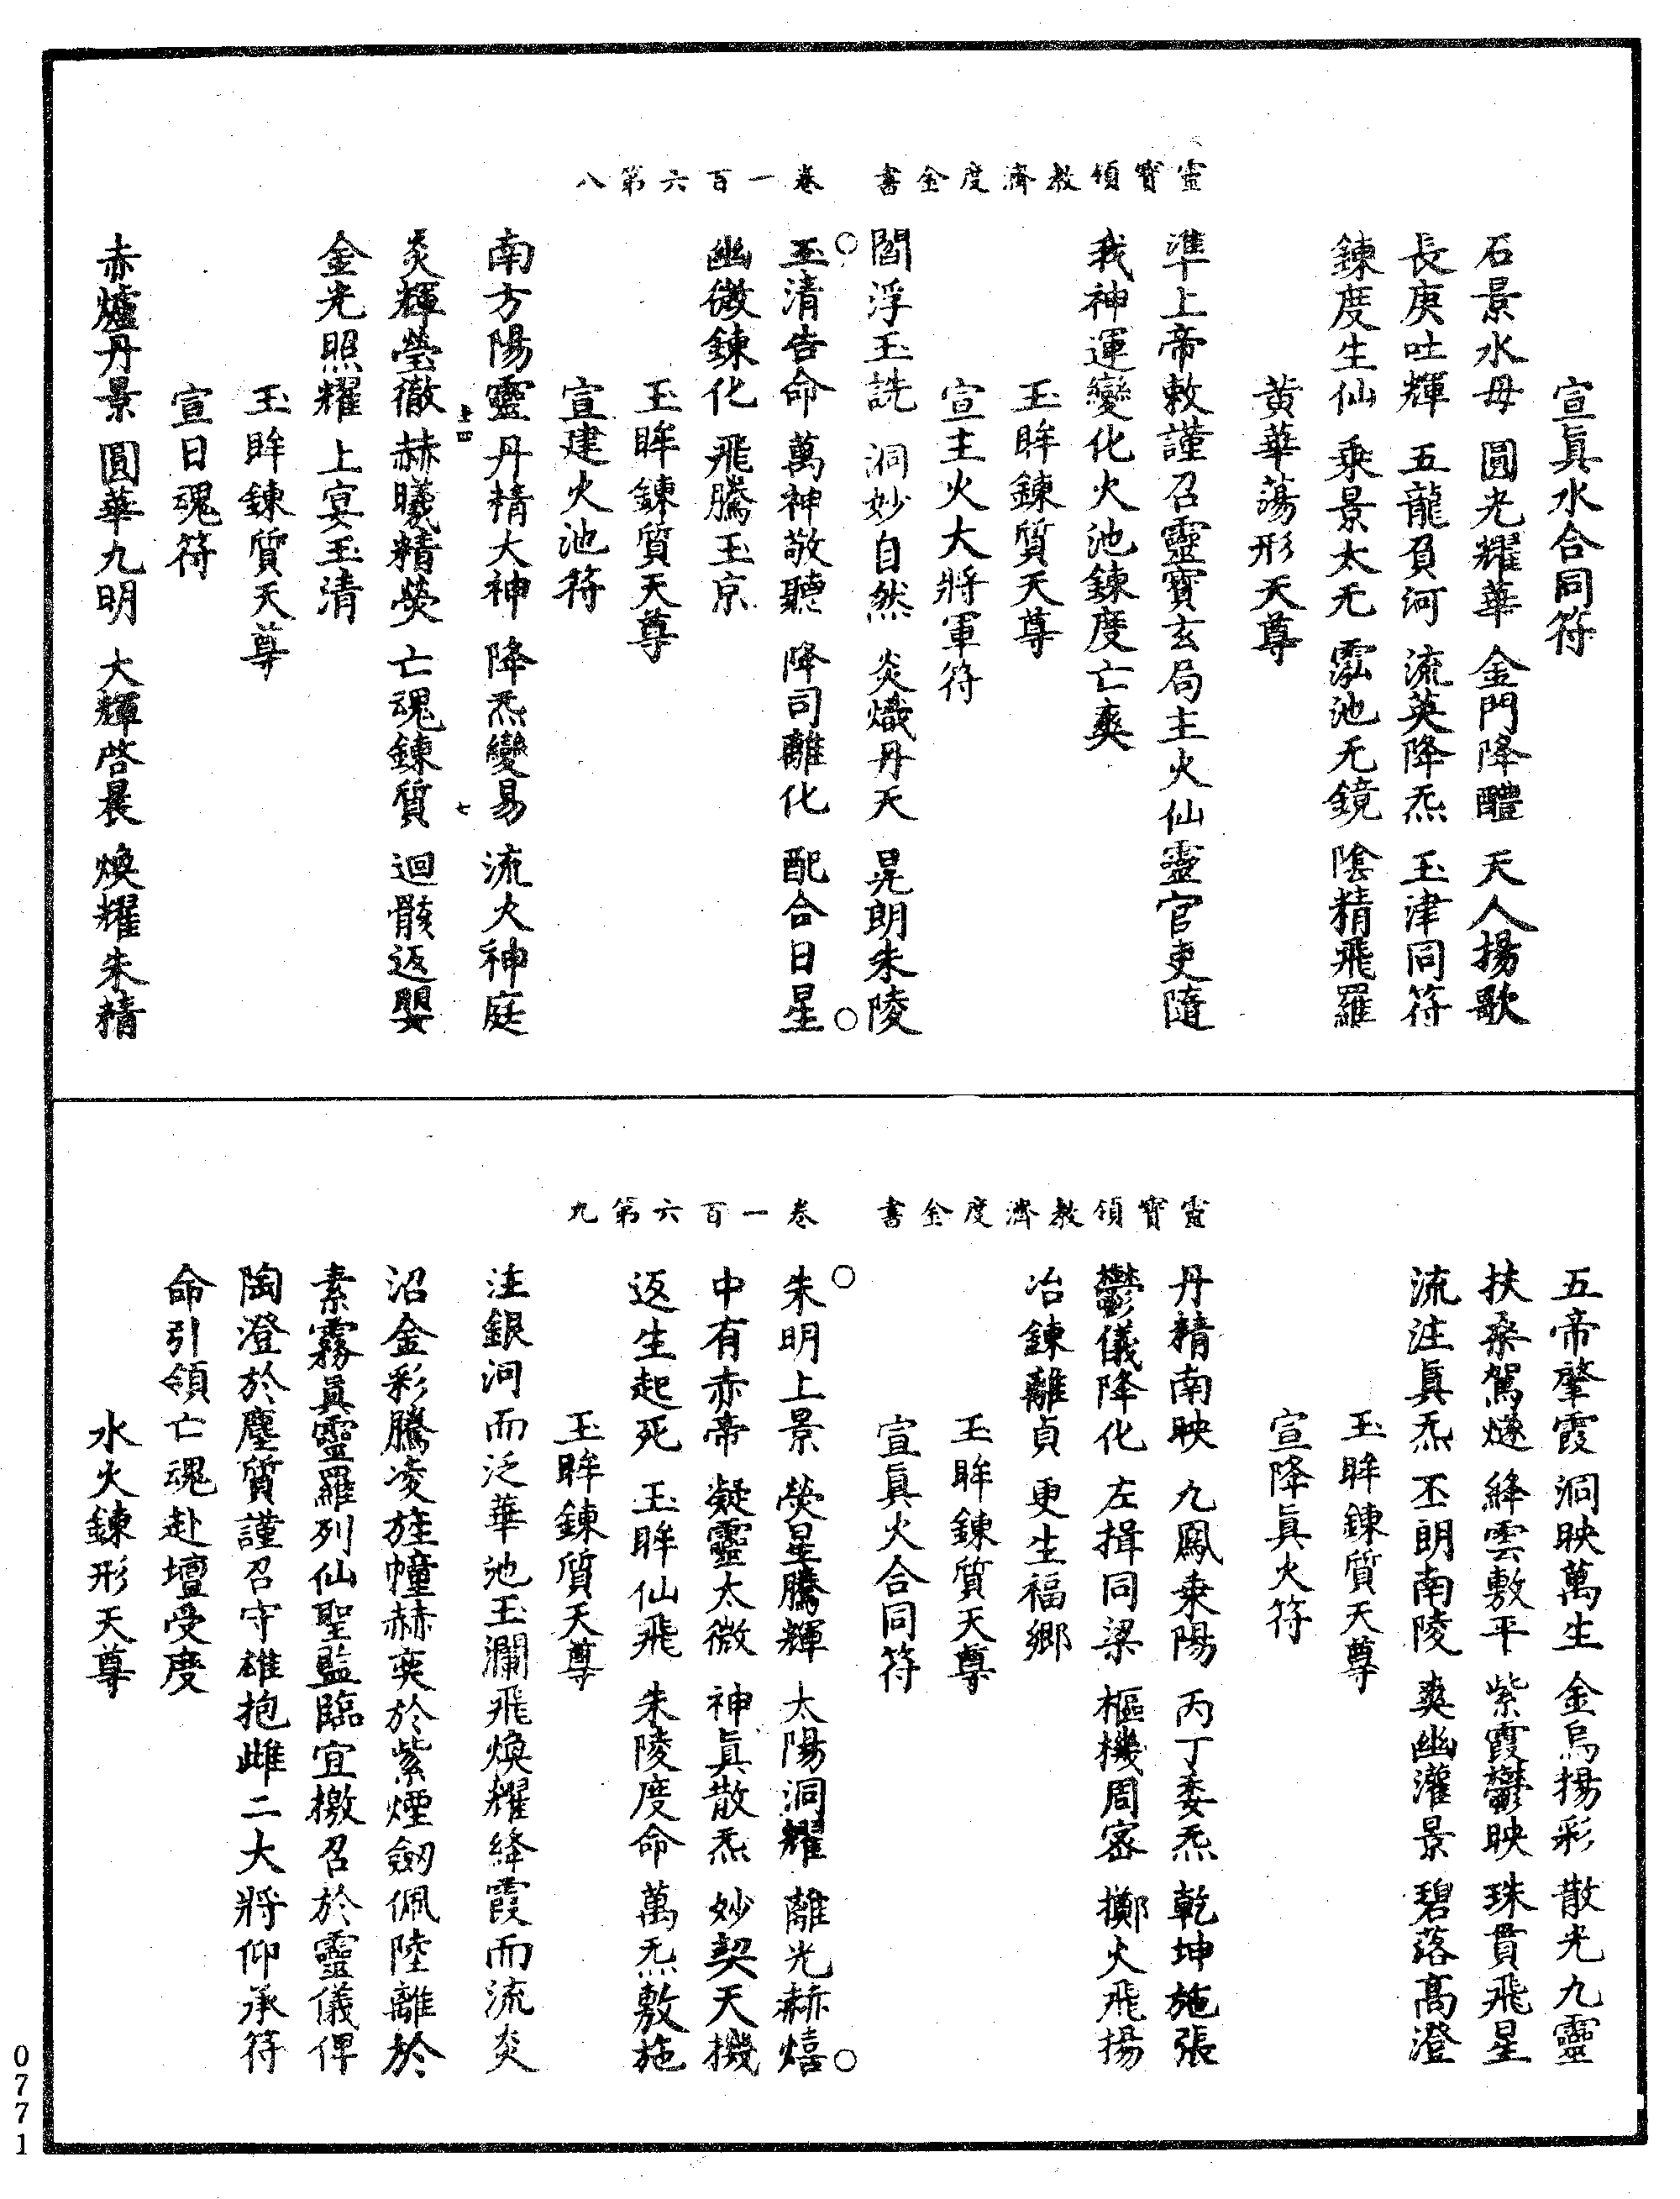 靈寶領教濟度金書　卷一百六第八
宣眞水合同符
石景水母　圓光耀華　金門降醴　天人揚歌
長庚吐輝　五龍負河　流英降炁　玉津同符
鍊度生仙　乘景太无　澐池无鏡　陰精飛羅
黃華蕩形天尊
準上帝敕謹召靈寶玄局主火仙靈官吏隨
我神運變化火池鍊度亡爽
玉眸鍊質天尊
宣主火大將軍符
閻浮玉詵　洞妙自然　炎熾丹天　晃朗朱陵
玉清告命　萬神敬聽　降司離化　配合日星
幽微鍊化　飛騰玉京
玉眸鍊質天尊
宣建火池符
南方陽靈　丹精大神　降炁變易　流火神庭
七
炎輝瑩徹　赫曦精熒　亡魂鍊質　迴骸返嬰
金光照耀　上宴玉清
玉眸鍊質天尊
宣日魂符
赤爐丹景　圓華九明　大輝啓晨　煥耀朱精
靈寶領教濟度金書　卷一百六第九
五帝肇霞　洞映萬生　金烏揚彩　散光九靈
扶桑駕燧　絳雲敷平　紫霞鬱映　珠貫飛星
流注眞炁　丕朗南陵　爽幽灌景　碧落高澄
玉眸鍊質天尊
宣降眞火符
丹精南映　九鳳乘陽　丙丁委炁　乾坤施張
鬱儀降化　左揖同梁　樞機周密　擲火飛揚
冶鍊離貞　更生福鄉
玉眸鍊質天尊
宣眞火合同符
朱明上景　熒星騰輝　太陽洞耀　離光赫熺
中有赤帝　凝靈太微　神眞散炁　妙契天機
返生起死　玉眸仙飛　朱陵度命　萬炁敷施
玉眸鍊質天尊
注銀河而泛華池玉瀾飛煥耀絳霞而流炎
沼金彩騰凌旌幢赫奕於紫煙劒佩陸離於
素霧眞靈羅列仙聖監臨宜檄召於靈儀俾
陶澄於塵質謹召守雄抱雌二大將仰承符
命引領亡魂赴壇受度
水火鍊形天尊
0771